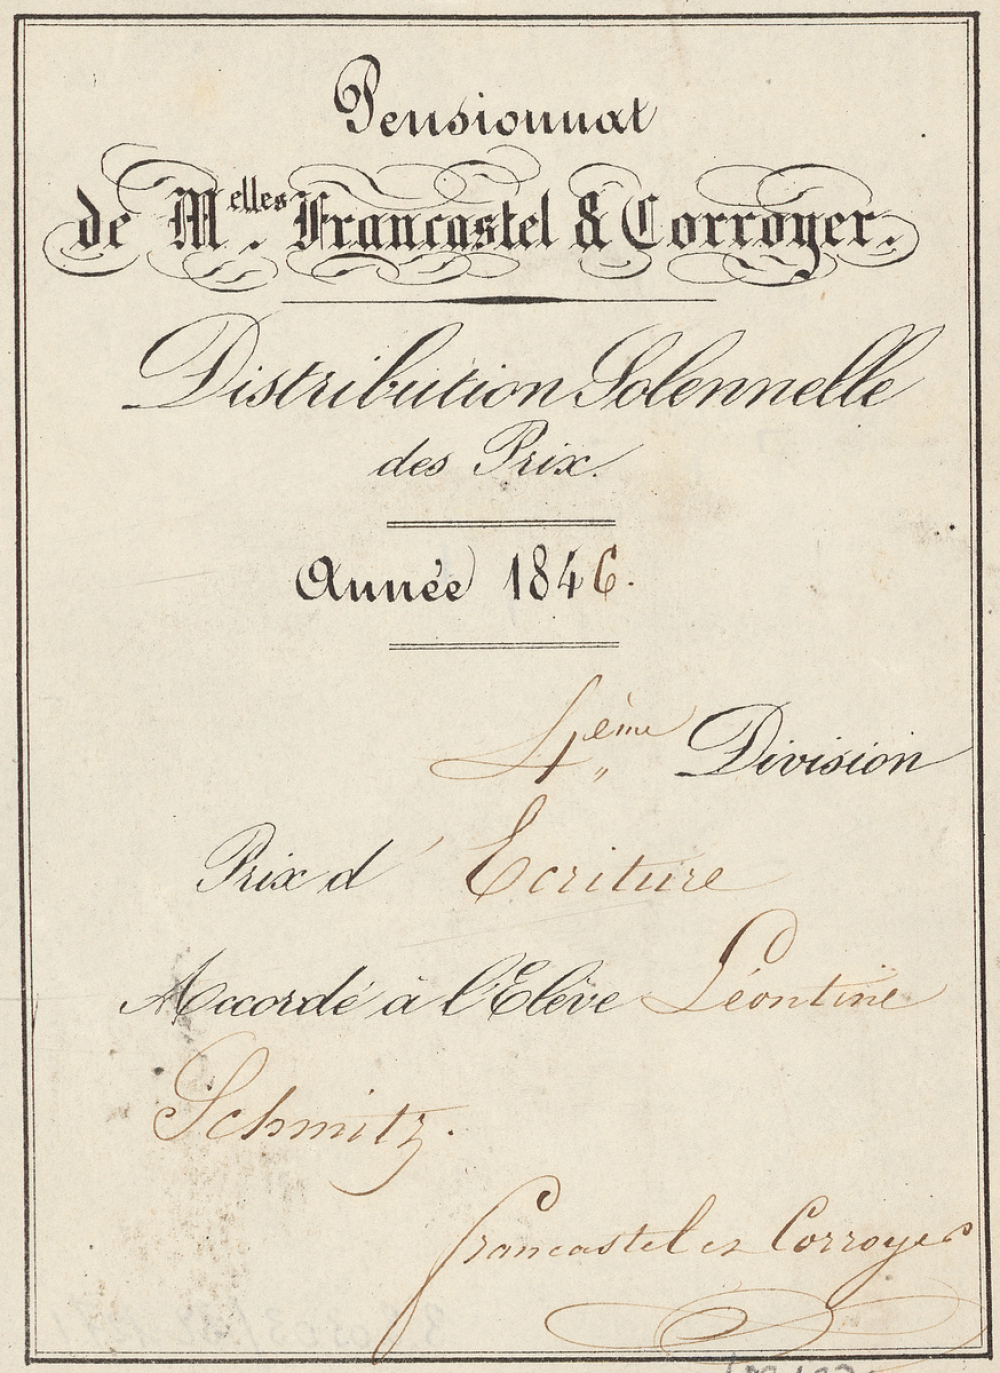 Pensionnat
de M.elles Francastel & Corroyer.
Distribution Solennelle
des Prix.
Année 1846.
4ème Division
Prix d' Ecriture
Accordé à l'Elève Léontine
Schmitz.
francastel et Corroyer